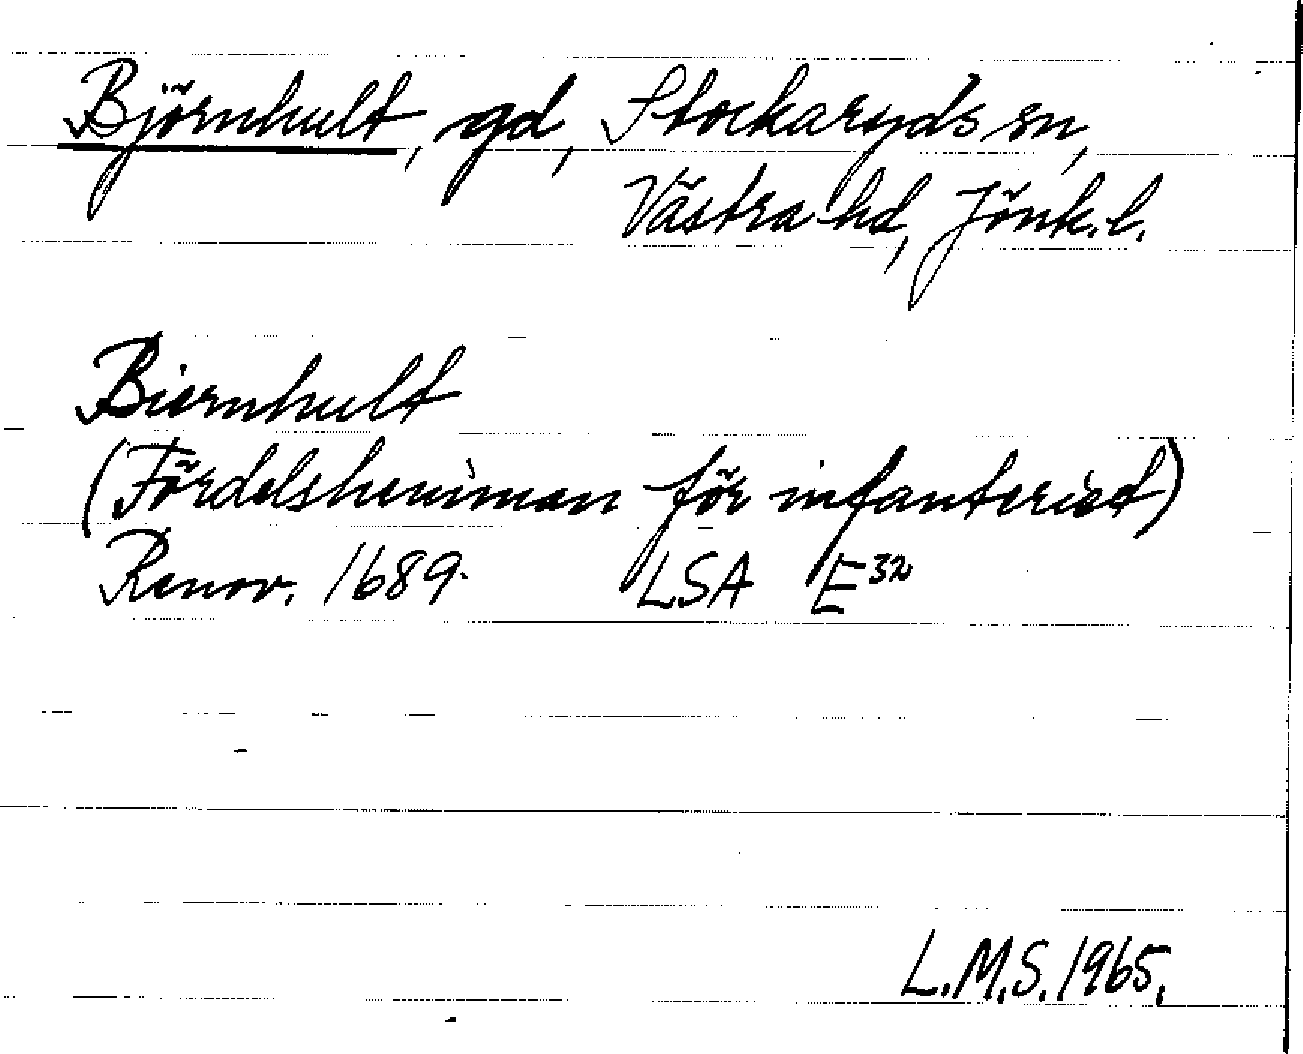 Björnhult, gd, Stockaryds sn,
Västra hd, Jönk. l.
Biernhult
(Fördelshemman för infanterist)
Renov. 1689. LSA E³²
L.M.S. 1965.